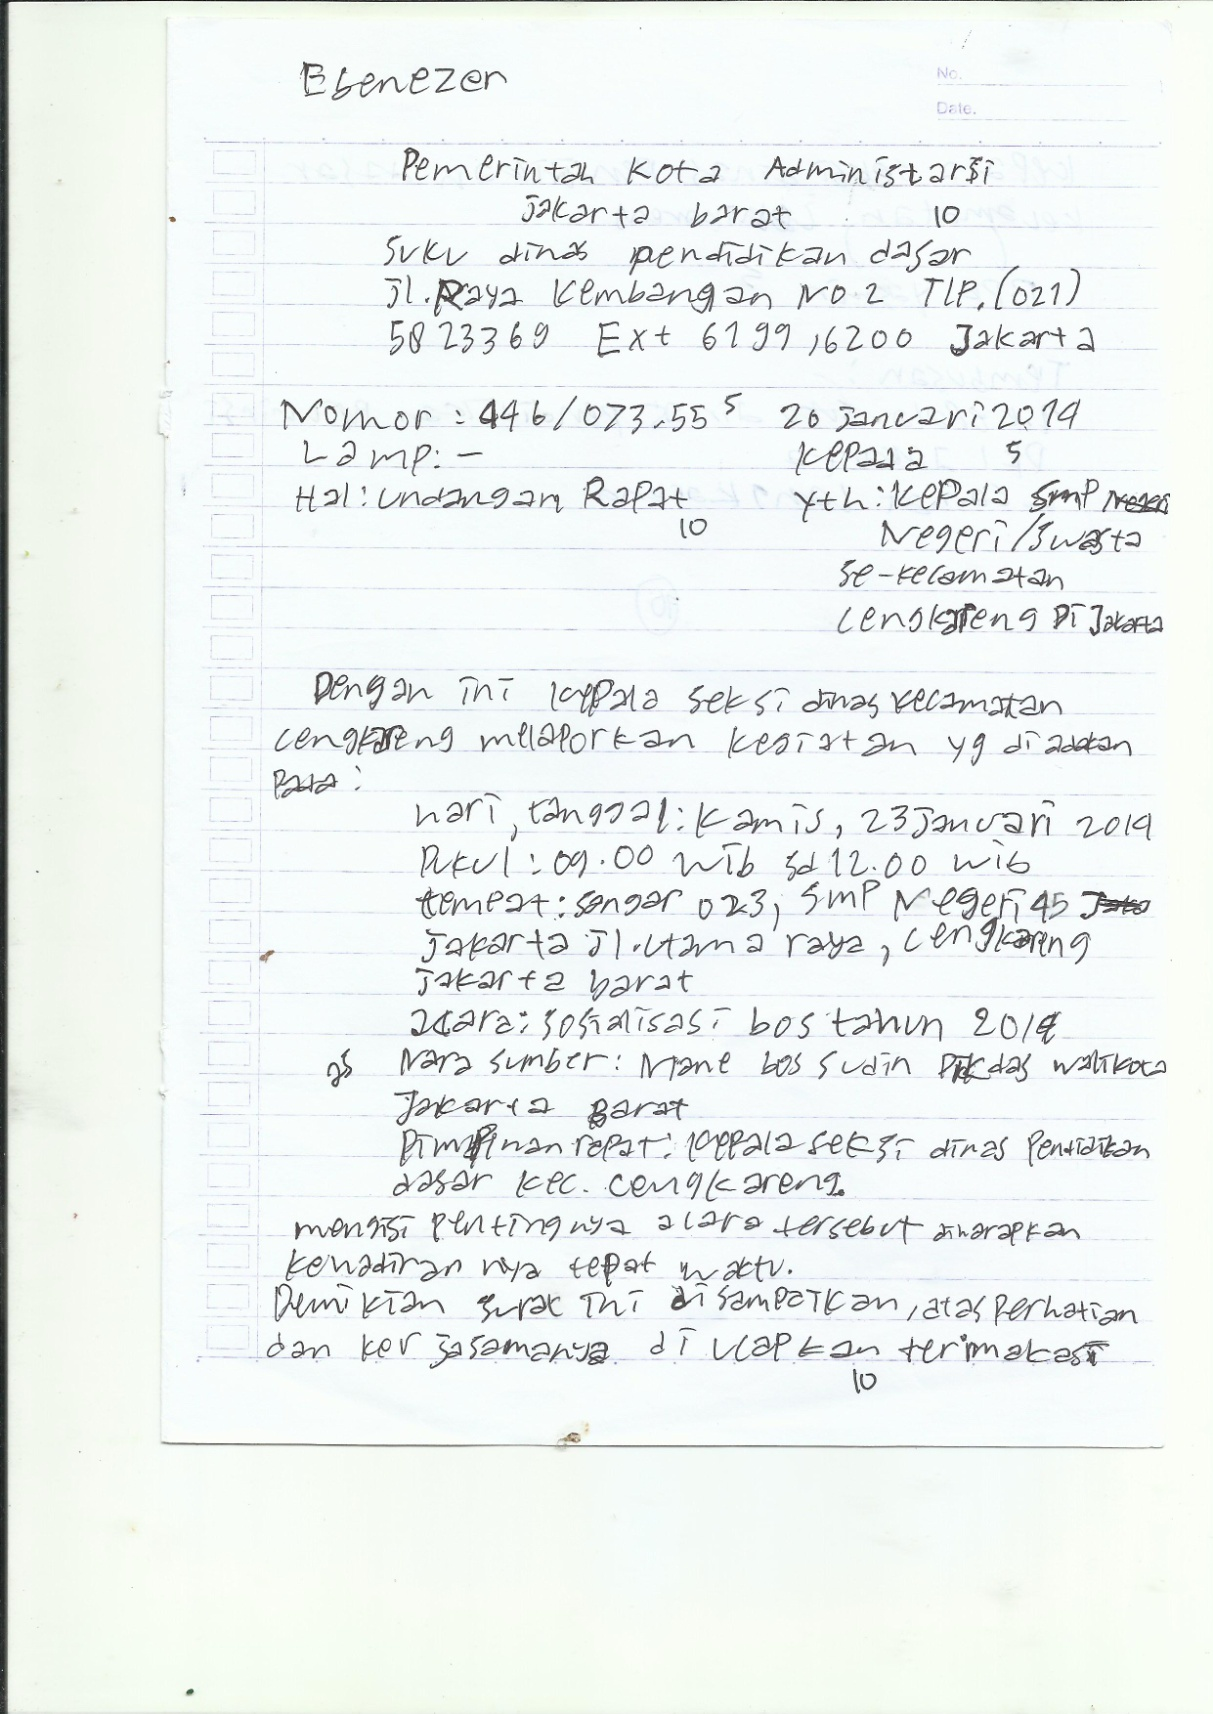 Ebenezer
No.
Date.
Pemerintah Kota Administarsi
Jakarta barat 10
suku dinas pendidikan dasar
jl. Raya Kembangan No 2 Tlp. (021)
5823369 Ext 6199,6200 Jakarta
Nomor : 446/073.55 5 20 januari 2014
Lamp: - Kepada 5
Hal: undangan Rapat yth: Kepala SMP
10 Negeri/Swasta
se-kecamatan
Cengkareng Di Jakarta
Dengan ini kepala seksi dinas kecamatan
cengkareng melaporkan kegiatan yg di adakan
Pada :
hari, tanggal: Kamis, 23 januari 2014
Pukul : 09.00 wib sd 12.00 wib
tempat: sangar 023, SMP Negeri 45
jakarta jl. utama raya, cengkareng
jakarta barat
acara: sosialisasi bos tahun 2014
25 Nara sumber: Mane bos sudin walikota
Jakarta Barat
Pimpinan rapat: Kepala seksi dinas Pendidikan
dasar kec. cengkareng.
mengisi pentingnya acara tersebut diharapkan
kehadiran nya tepat waktu.
Demikian surat ini disampaikan, atas perhatian
dan ker jasamanya di ucapkan terimakasi
10